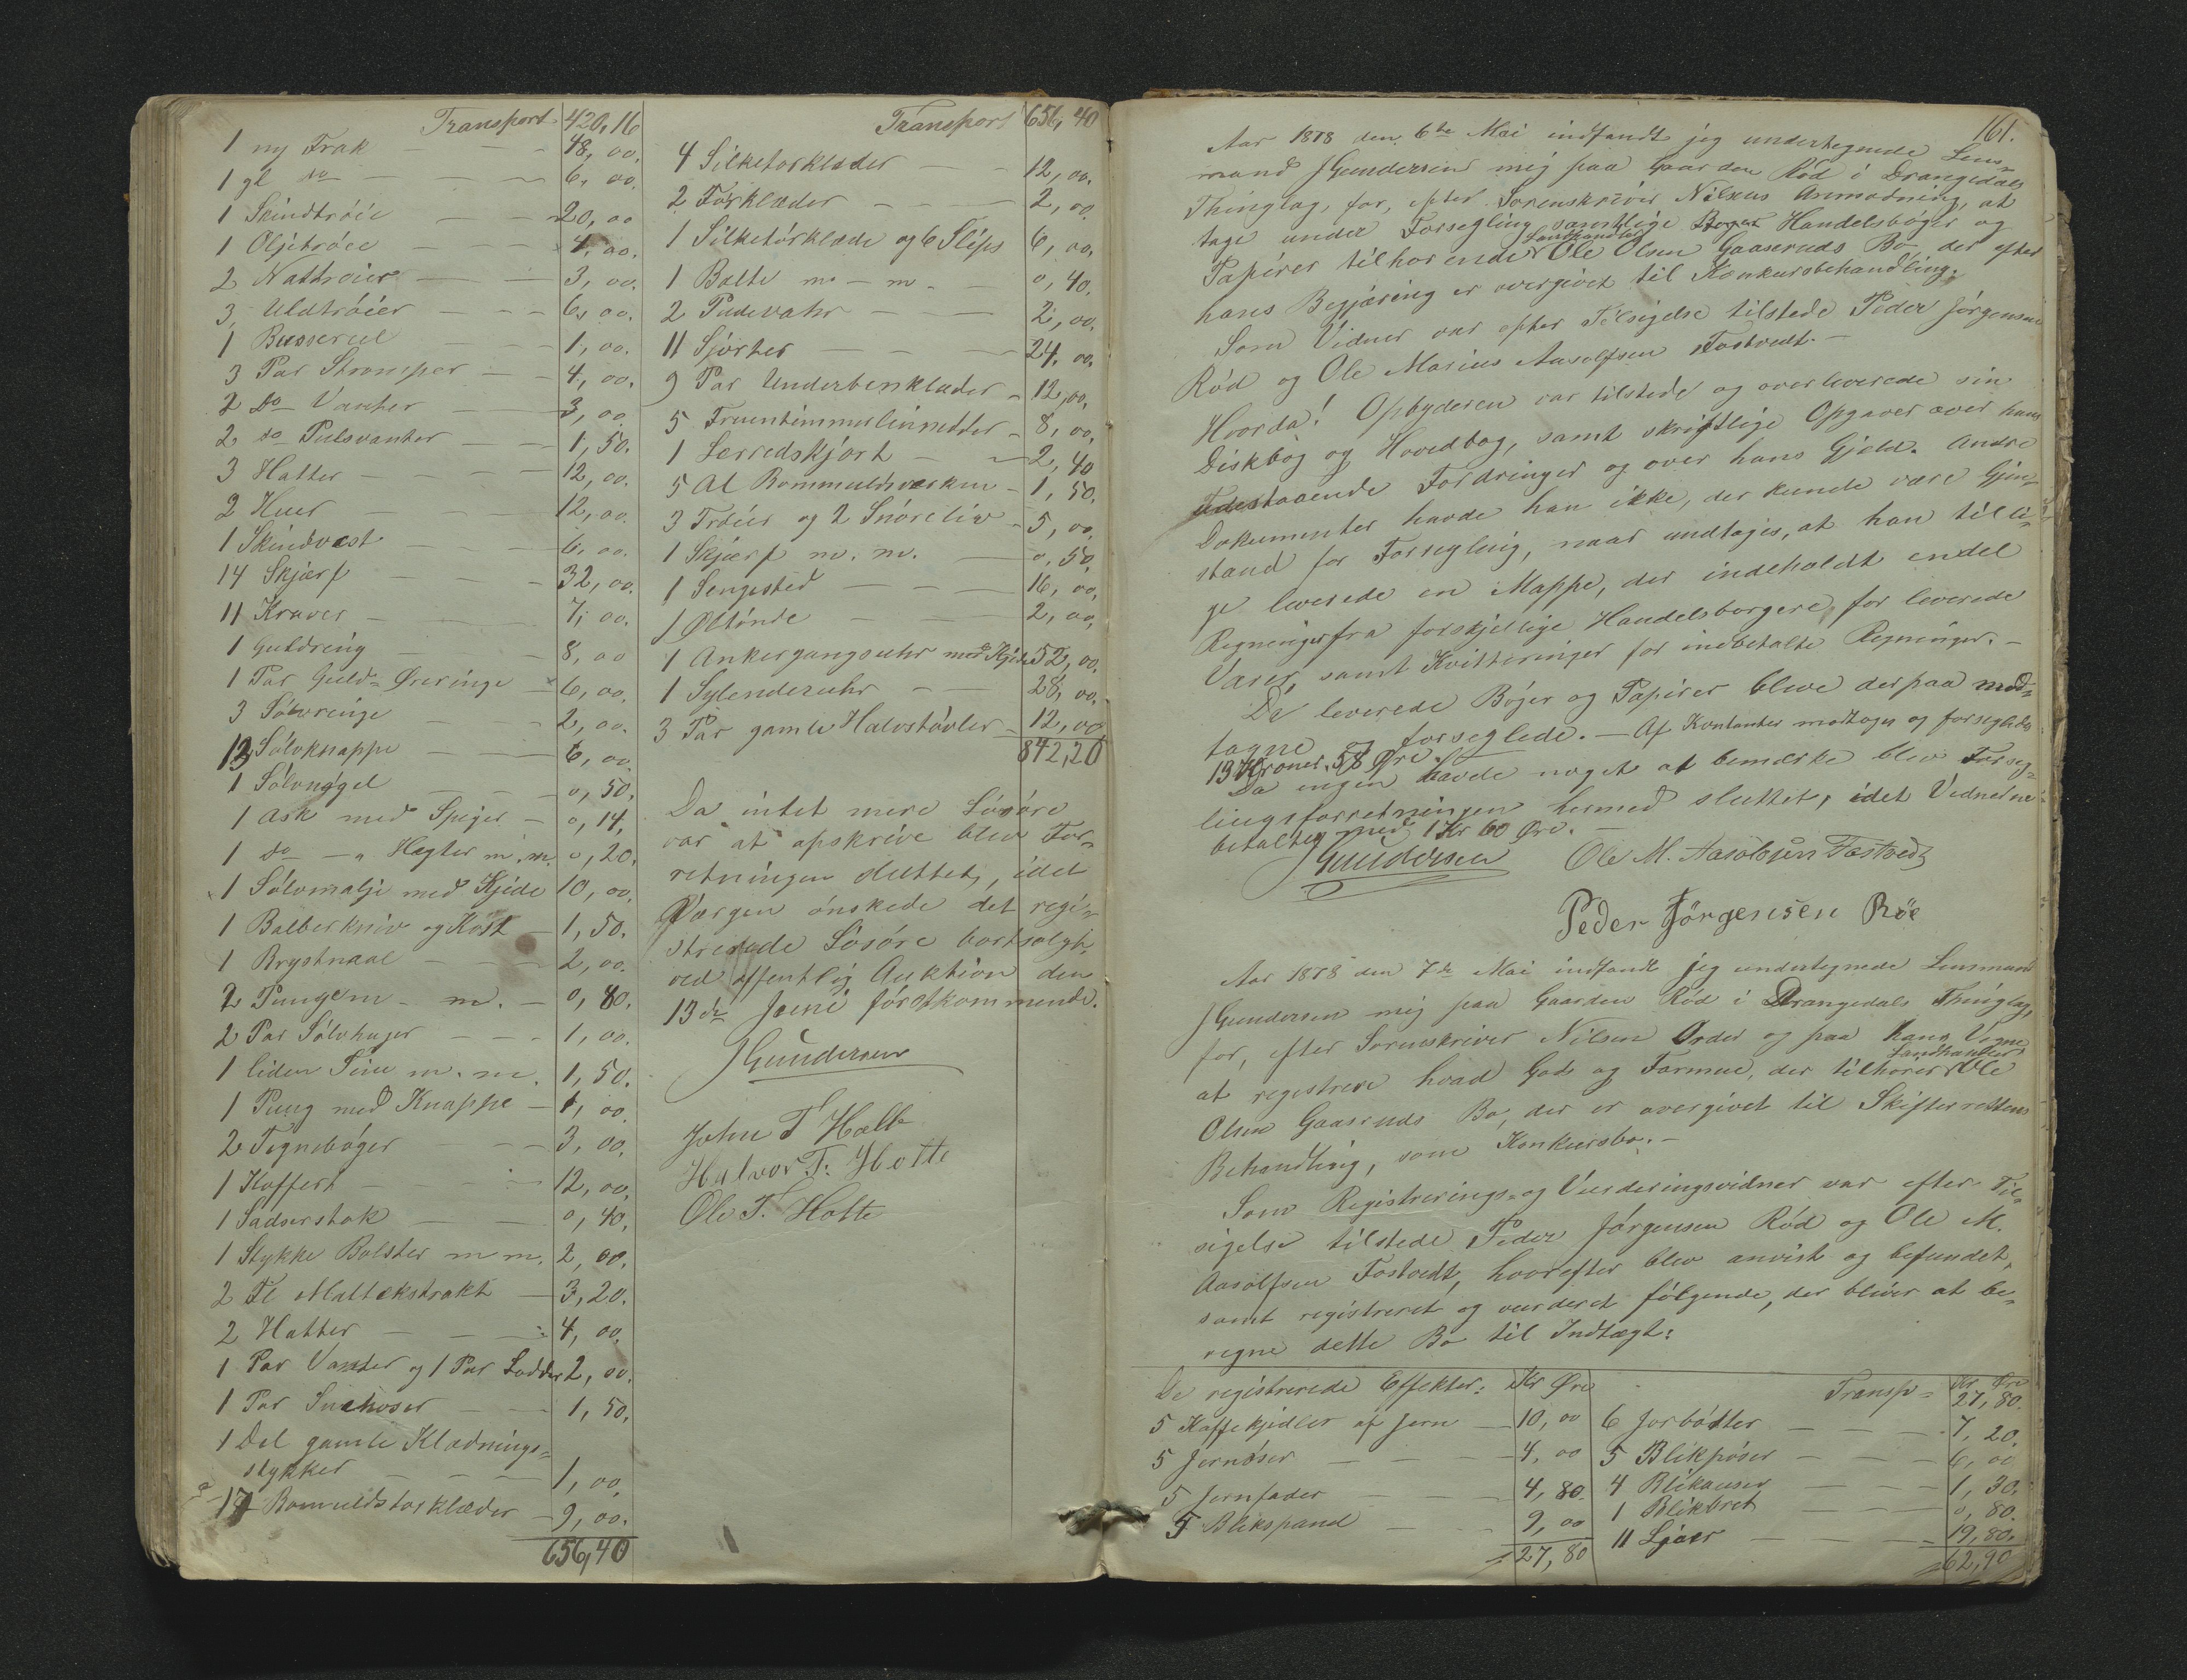 Transport 420,16
1 ny Frak — — — 48,00.
1 gl do — — — 6,00.
1 Skindtröie — — 20,00
1 Oljetröie — — 4,00.
2 Nattröier — — 3,00.
3 Uldtröier — — 6,00.
1 Busserul — — 1,00.
3 Par Strømper — 4,00.
2 do Vanter — 3,00
2 do Pulsvanter — 1,50.
3 Hatter — — 12,00.
2 Huer — — 12,00.
1 Skindvest — — 6,00.
14 Skjærf — — 32,00.
11 Kraver — — 7,00.
1 Guldring — 8,00
1 Par Guld=Øreringe 6,00.
3 Sölvringe — 2,00.
13 Sölvknappe — 6,00
1 Sölvnögel — 0,50.
1 Ask med Spiger — 0,14,
1 do — " Hægter m.m. 0,20.
1 Sölvmalje med Kjede 10,00.
1 Balberkniv og Kost — 1,50.
1 Brystnaal — — 2,00.
2 Punge m — m. — 0,80.
2 Par Sölvhager — — 1,00.
1 liden Tine m. m. 1,50.
1 Pung med Knappe — 1,00
2 Tegneböger — — 3,00.
1 Koffert — — 12,00,
1 Sadserstak — — 0,40,
1 Stykke Bolster m m. 2,00.
2 Fl Maltekstrakt — 3,20.
2 Hatter — — 4,00.
1 Par Vanter og 1 Par Lodder 2,00.
1 Par Snehoser — — 1,50,
1 Del gamle Klædnings=
stykker — — — 1,00,
17 Bomuldstörklæder — 9,00.
656,40
Transport 656,40
4 Silketörklæder — — 12,00.
2 Törklæder — — — 2,00
1 Silketörklæde og 6 Slips 6,00,
1 Balte m — m — 0,40.
2 Pudevahr — — 2,00,
11 Sjorter — — 24,00.
9 Par Underbenklæder — 12,00,
5 Fruentimmerlinnetter — 8,00,
1 Lerredskjört — 2,40
5 Al Bommuldsverken — 1,50.
3 Tröier og 2 Snöreliv — 5,00
1 Skjærf m. m. — 0,50,
1 Sengested — — 16,00,
1 Öltönde — — 2,00,
1 Ankergangsuhr med Kjede 52,00.
1 Sylenderuhr — — 28,00.
3 Par gamle Halvstövler — 12,00
842,20
Da intet mere Lösöre
var at opskrive blev For=
retningen sluttet, idet
Værgen önskede det regi=
strerede Lösöre bortsolgt
ved offentlig Auktion den
13de Juni förstkommende.
JGundersen
John T Holte
Halvor T. Holte
Ole T. Holte
161.
Aar 1878 den 6te Mai indfandt jeg undertegnede Lens=
mand JGundersen mig paa Gaarden Röd i Drangedals
Thinglag, for, efter Sorenskriver Nilsens Anmodning, at
tage under Forsegling samtlige Handelsböger og
Papirer tilhörende Landhandler Ole Olsen Gaaseruds Bo, der efter
hans Begjæring er overgivet til Konkursbehandling.
Som Vidner var efter Tilsigelse tilstede Peder Jörgensen
Röd og Ole Marius Aasolfsen Tostvedt. —
Hvorda! Opbyderen var tilstede og overleverede sin
Diskbog og Hovedbog, samt skriftlige Opgaver over hans
udestaaende Fordringer og over hans Gjæld. Andre
Dokumenter havde han ikke, der kunde være Gjen=
stand for Forsegling, naar undtages, at han tilli=
ge leverede en Mappe, der indeholdt endel
Regninger fra forskjellige Handelsborgere, for leverede
Varer, samt Kvitteringer for indbetalte Regninger. —
De leverede Böger og Papirer bleve derpaa mod=
tagne og forseglede. — Af Kontanter modtoges og forsegledes
19 Kroner 58 Øre.
Da ingen havde noget at bemærke blev Forseg=
lingsforretningen hermed sluttet, idet Vidnerne
betaltes med 1 Kr 60 Øre. —
JGundersen Ole M. Aasolvsen Tostvedt
Peder Jörgensen Röe
Aar 1878 den 7de Mai indfandt jeg undertegnede Lensmand
JGundersen mig paa Gaarden Röd i Drangedals Thinglag,
for, efter Sorenskriver Nilsen Order og paa hans Vegne
at registrere hvad Gods og Formue, der tilhörer Landhandler Ole
Olsen Gaaseruds Bo, der er overgivet til Skifterettens
Behandling, som Konkursbo. —
Som Registrerings= og Vurderingsvidner var efter Til=
sigelse tilstede Peder Jörgensen Röd og Ole M.
Aasolfsen Tostvedt, hvorefter blev anvist og befundet,
samt registreret og vurderet fölgende, der bliver at be=
regne dette Bo til Indtægt:
De registrerede Effekter: Kr Øre
5 Kaffekjedler af Jern — 10,00
5 Jernöser — — — 4,00
5 Jernfader — — 4,80.
5 Blikspand — — 9,00
27,80
Transp= Kr Øre 27,80.
6 Jorbötter — — 7,20.
5 Blikpöser — — 6,00
4 Blikauser — — 1,30.
1 Blikbret — — 0,80.
11 Ljaer — — 19,80.
62,90